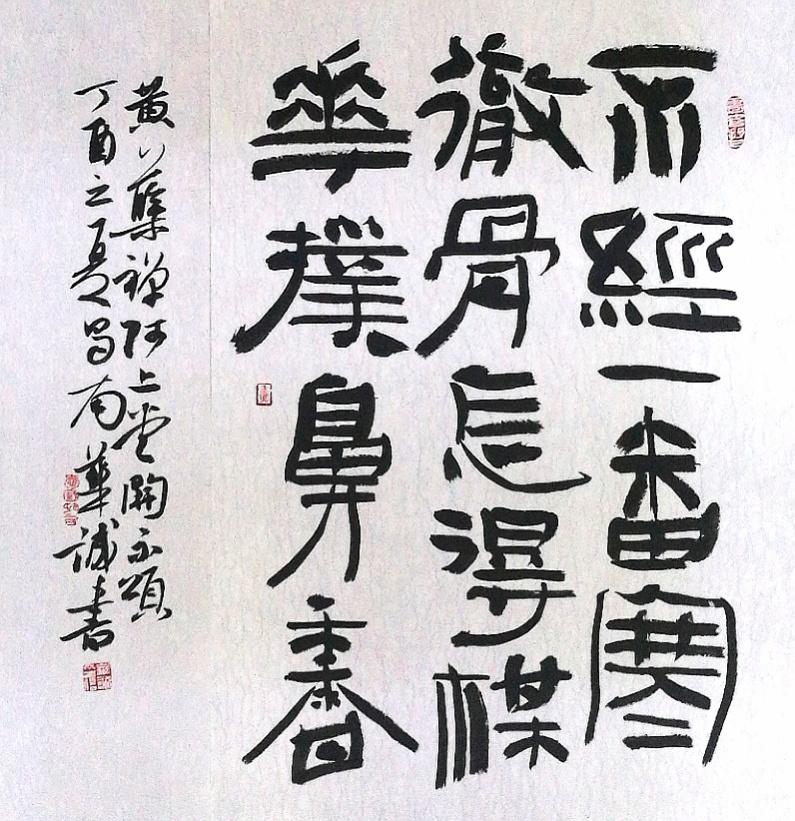 不經一番寒
徹骨怎得楳
華撲鼻香
黄蘗禪師上堂開示頌
丁酉之夏昌南華誠書